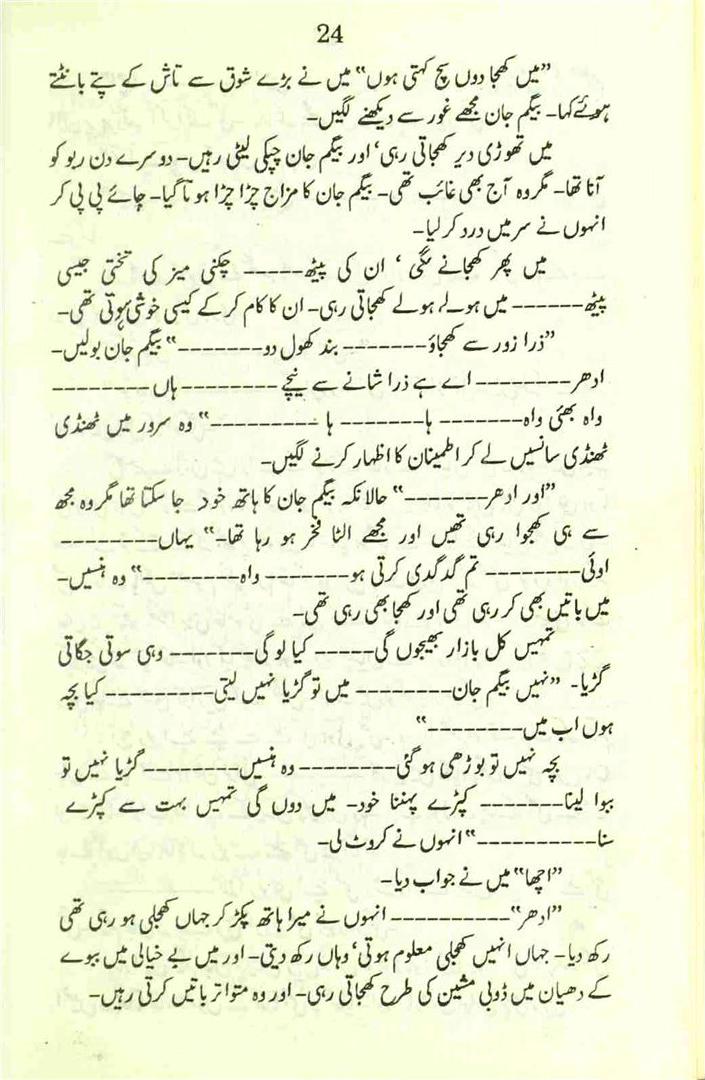 24
"میں کھجا دوں سچ کہتی ہوں" میں نے بڑے شوق سے تاش کے پتے بانٹتے
ہوئے کہا۔ بیگم جان مجھے غور سے دیکھنے لگیں۔
میں تھوڑی دیر کھجاتی رہی، اور بیگم جان چپکی لیٹی رہیں۔ دوسرے دن ربو کو
آنا تھا۔ مگر وہ آج بھی غائب تھی۔ بیگم جان کا مزاج چڑا چڑا ہوتا گیا۔ چائے پی پی کر
انہوں نے سر میں درد کر لیا۔
میں پھر کھجانے لگی، ان کی پیٹھ ----- چکنی میز کی تختی جیسی
پیٹھ ------ میں ہولے ہولے کھجاتی رہی۔ ان کا کام کر کے کیسی خوشی ہوتی تھی۔
"ذرا زور سے کھجاؤ -------- بند کھول دو --------" بیگم جان بولیں۔
ادھر --------- اے ہے ذرا شانے سے نیچے --------- ہاں ---------
واہ بھئی واہ -------- ہا ------- ہا ----------" وہ سرور میں ٹھنڈی
ٹھنڈی سانسیں لے کر اطمینان کا اظہار کرنے لگیں۔
"اور ادھر --------" حالانکہ بیگم جان کا ہاتھ خود جا سکتا تھا مگر وہ مجھ
سے ہی کھجوا رہی تھیں اور مجھے الٹا فخر ہو رہا تھا۔" یہاں ---------
اوئی -------- تم گدگدی کرتی ہو -------- واہ ---------" وہ ہنسیں۔
میں باتیں بھی کر رہی تھی اور کھجا بھی رہی تھی۔
تمہیں کل بازار بھیجوں گی ----- کیا لو گی -------- وہی سوتی جگاتی
گڑیا۔ "نہیں بیگم جان --------- میں تو گڑیا نہیں لیتی --------- کیا بچہ
ہوں اب میں ---------"
بچہ نہیں تو بوڑھی ہو گئی --------- وہ ہنسیں --------- گڑیا نہیں تو
ببوا لینا -------- کپڑے پہننا خود۔ میں دوں گی تمہیں بہت سے کپڑے
سنا ----------" انہوں نے کروٹ لی۔
"اچھا" میں نے جواب دیا۔
"ادھر" ---------- انہوں نے میرا ہاتھ پکڑ کر جہاں کھجلی ہو رہی تھی
رکھ دیا۔ جہاں انہیں کھجلی معلوم ہوتی، وہاں رکھ دیتی۔ اور میں بے خیالی میں ببوے
کے دھیان میں ڈوبی مشین کی طرح کھجاتی رہی۔ اور وہ متواتر باتیں کرتی رہیں۔